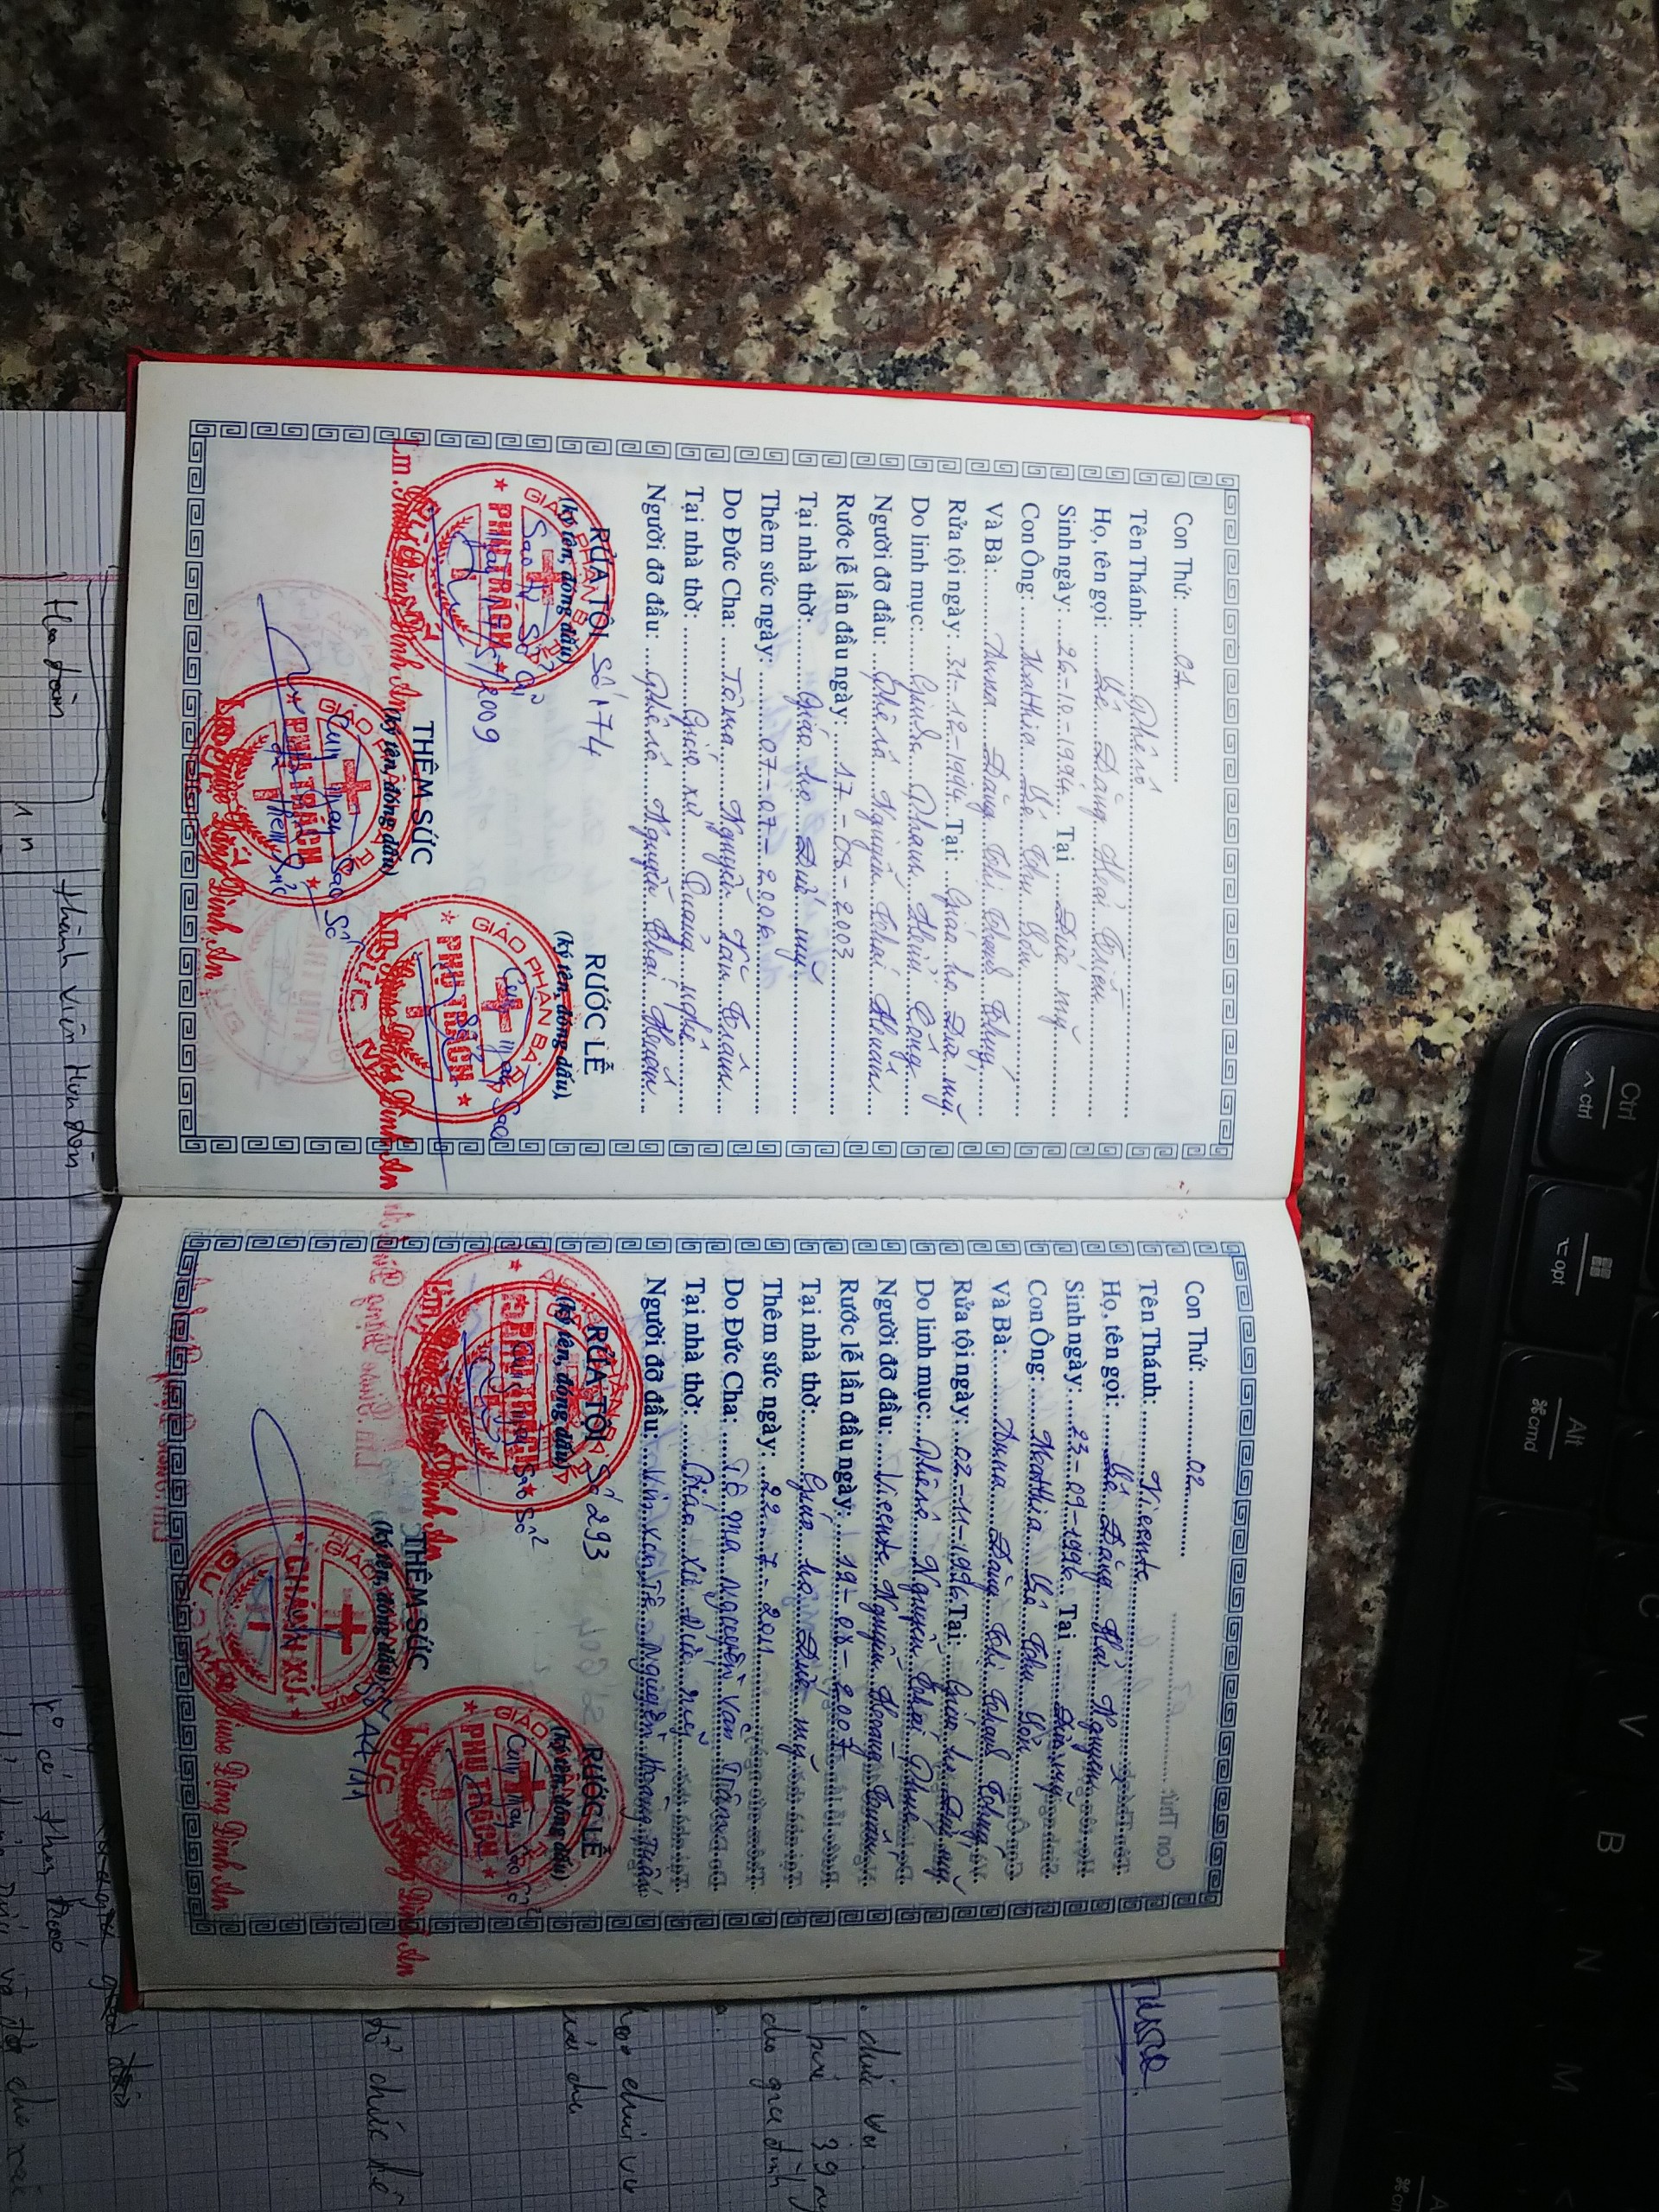 Ctrl
^ ctrl
⌥ opt
Alt
⌘ cmd
C
V
B
N
M
<
Con Thứ: 01
Tên Thánh: Phêrô
Họ, tên gọi: Lê Đăng Hải Triều
Sinh ngày: 26-10-1994 Tại Đức mỹ
Con Ông: Matthia Lê Thu Sơn
Và Bà: Anna Đặng Thị Thanh Thuý
Rửa tội ngày: 31-12-1994 Tại: Giáo họ Đức mỹ
Do linh mục: Giuse Phạm Hữu Công
Người đỡ đầu: Phêrô Nguyễn Thái Huấn
Rước lễ lần đầu ngày: 17-08-2003
Tại nhà thờ: Giáo họ Đức mỹ
Thêm sức ngày: 07-07-2006
Do Đức Cha: Tôma Nguyễn Văn Trâm
Tại nhà thờ: Giáo xứ Quảng nghệ
Người đỡ đầu: Phêrô Nguyễn Thái Huấn
RỬA TỘI Số 174
(ký tên, đóng dấu)
GIÁO PHẬN BÀ RỊA
Sao từ Sổ cũ
PHỤ TRÁCH
ngày 17/5/2009
Lm. Giuse Đặng Đình An
RƯỚC LỄ
(ký tên, đóng dấu)
GIÁO PHẬN BÀ RỊA
Cùng ngày Sao
Sổ
PHỤ TRÁCH
Lm. Giuse Đặng Đình An
ĐỨC MỸ
THÊM SỨC
(ký tên, đóng dấu)
GIÁO PHẬN BÀ RỊA
Cùng ngày Sao Sổ
PHỤ TRÁCH
đã thêm Sức
Lm. Giuse Đặng Đình An
Con Thứ: 02
Tên Thánh: Vicente
Họ, tên gọi: Lê Đăng Hải Nguyên
Sinh ngày: 23-09-1996 Tại Đức mỹ
Con Ông: Matthia Lê Thu Sơn
Và Bà: Anna Đặng Thị Thanh Thuý
Rửa tội ngày: 02-11-1996 Tại: Giáo họ Đức mỹ
Do linh mục: Phêrô Nguyễn Thái Phúc
Người đỡ đầu: Vicente Nguyễn Hoàng Tuấn
Rước lễ lần đầu ngày: 19-08-2007
Tại nhà thờ: Giáo họ Đức mỹ
Thêm sức ngày: 22-7-2011
Do Đức Cha: Tô ma Nguyễn Văn Trâm
Tại nhà thờ: Giáo xứ Đức mỹ
Người đỡ đầu: Vin xen tê Nguyễn Hoàng Tuấn
RỬA TỘI Số 293
(ký tên, đóng dấu)
Cùng ngày Sao Sổ 2
PHỤ TRÁCH
Lm. Giuse Đặng Đình An
RƯỚC LỄ
(ký tên, đóng dấu)
Cùng ngày Sao Sổ 2
PHỤ TRÁCH
Lm. Giuse Đặng Đình An
ĐỨC MỸ
THÊM SỨC
(ký tên, đóng dấu) Số 44/11
GIÁO PHẬN BÀ RỊA
CHÁNH XỨ
Lm. Giuse Đặng Đình An
chức vụ
39
cho gia đình
chức vụ
cho
tổ chức lễ
Hội đoàn
thành viên Hội đoàn
1 n